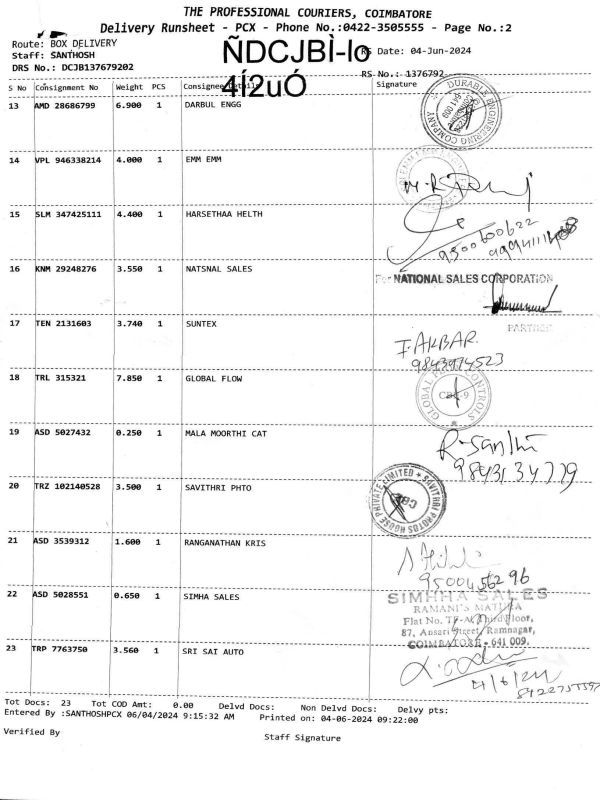 THE PROFESSIONAL COURIERS, COIMBATORE
Delivery Runsheet - PCX - Phone No.:0422-3505555 - Page No.:2
Route: BOX DELIVERY
Staff: SANTHOSH
DRS No.: DCJB137679202
ÑDCJBÌ-lo
4Í2uÓ
RS Date: 04-Jun-2024
RS No.: 1376792
S No Consignment No Weight PCS Consignee Details Signature
13 AMD 28686799 6.900 1 DARBUL ENGG
DURABLE ENGINEERING COMPANY
14 VPL 946338214 4.000 1 EMM EMM
15 SLM 347425111 4.400 1 HARSETHAA HELTH
9500600622
16 KNM 29248276 3.550 1 NATSNAL SALES
For NATIONAL SALES CORPORATION
PARTNER
17 TEN 2131603 3.740 1 SUNTEX
I. AKBAR.
9843974523
18 TRL 315321 7.850 1 GLOBAL FLOW
GLOBAL FLOW CONTROLS
CBE-9
19 ASD 5027432 0.250 1 MALA MOORTHI CAT
R. Santhi
9843134779
20 TRZ 102140528 3.500 1 SAVITHRI PHTO
SAVITHRI PHOTOS HOUSE PRIVATE LIMITED
CBE
21 ASD 3539312 1.600 1 RANGANATHAN KRIS
9500456296
22 ASD 5028551 0.650 1 SIMHA SALES
SIMHHA SALES
RAMANI'S MATHRA
Flat No. TF-A, Third Floor,
87, Ansari Street, Ramnagar,
COIMBATORE - 641 009.
23 TRP 7763750 3.560 1 SRI SAI AUTO
4/6/24
Tot Docs: 23 Tot COD Amt: 0.00 Delvd Docs: Non Delvd Docs: Delvy pts:
Entered By :SANTHOSHPCX 06/04/2024 9:15:32 AM Printed on: 04-06-2024 09:22:00
Verified By
Staff Signature